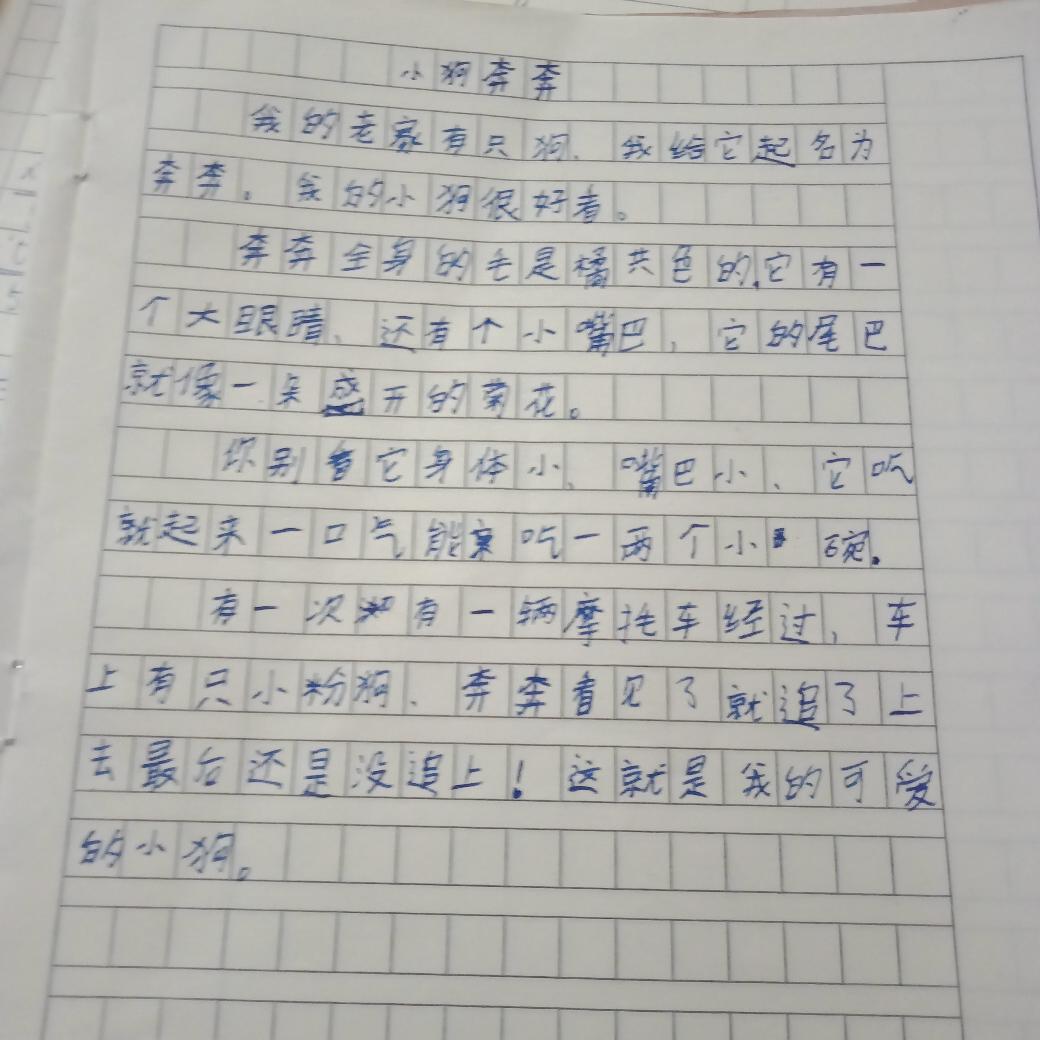 小狗奔奔
我的老家有只狗、我给它起名为
奔奔。我的小狗很好看。
奔奔全身的毛是橘共色的,它有一
个大眼睛、还有个小嘴巴,它的尾巴
就像一朵盛开的菊花。
你别看它身体小、嘴巴小、它吃
就起来一口气能吃一两个小碗.
有一次有一辆摩托车经过,车
上有只小粉狗、奔奔看见了就追了上
去最后还是没追上!这就是我的可爱
的小狗。